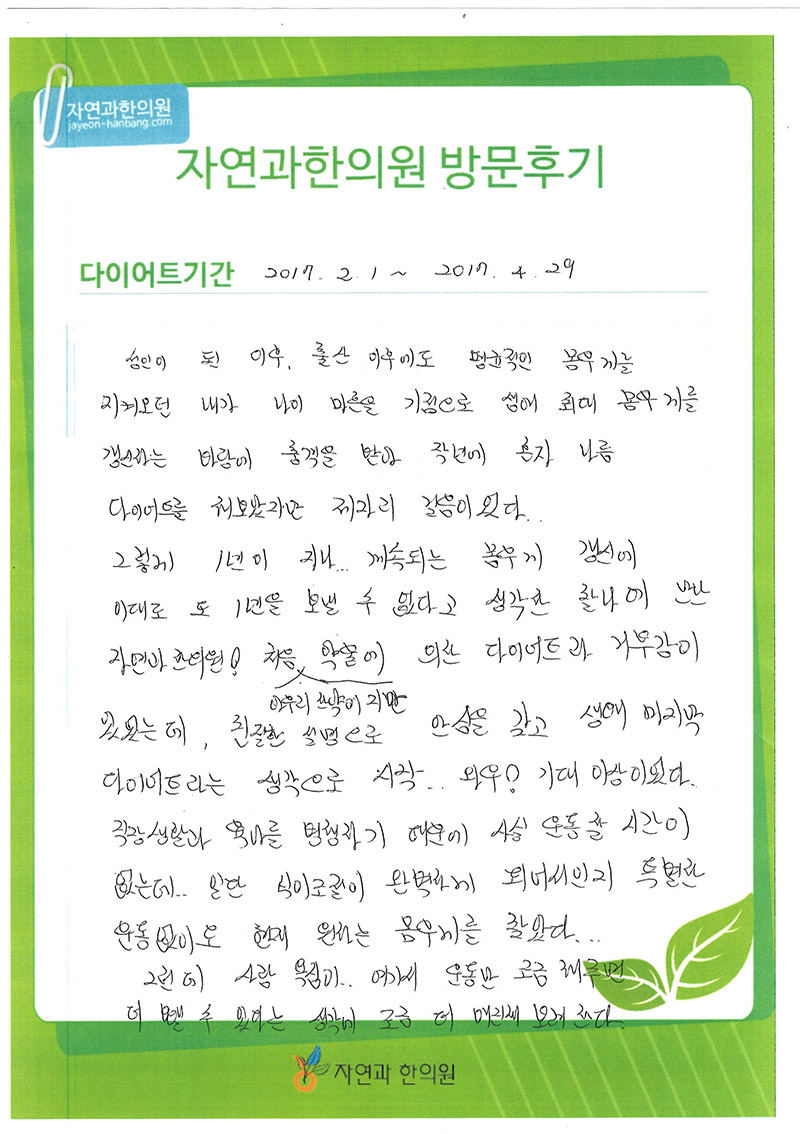 자연과한의원
jayeon-hanbang.com
자연과한의원 방문후기
다이어트기간 2017. 2. 1 ~ 2017. 4. 29
성인이 된 이후, 출산 이후에도 평균적인 몸무게를
지켜오던 내가 나이 마흔을 기점으로 생애 최대 몸무게를
갱신하는 바람에 충격을 받아 작년에 혼자 나름
다이어트를 해보았지만 제자리 걸음이었다..
그렇게 1년이 지나... 계속되는 몸무게 갱신에
이대로 또 1년을 보낼 수 없다고 생각한 찰나에 만난
자연과한의원! 처음 약물에 의한 다이어트라 거부감이
아무리 한약이지만
있었는데, 친절한 설명으로 안심을 갖고 생애 마지막
다이어트라는 생각으로 시작... 와우! 기대 이상이었다.
직장생활과 육아를 병행하기 때문에 사실 운동할 시간이
없는데.. 일단 식이조절이 완벽하게 되어서인지 특별한
운동 없이도 현재 원하는 몸무게를 찾았다...
그런데 사람 욕심이.. 여기서 운동만 조금 해주면
더 뺄 수 있다는 생각에 조금 더 매진해 보려 한다.
자연과 한의원